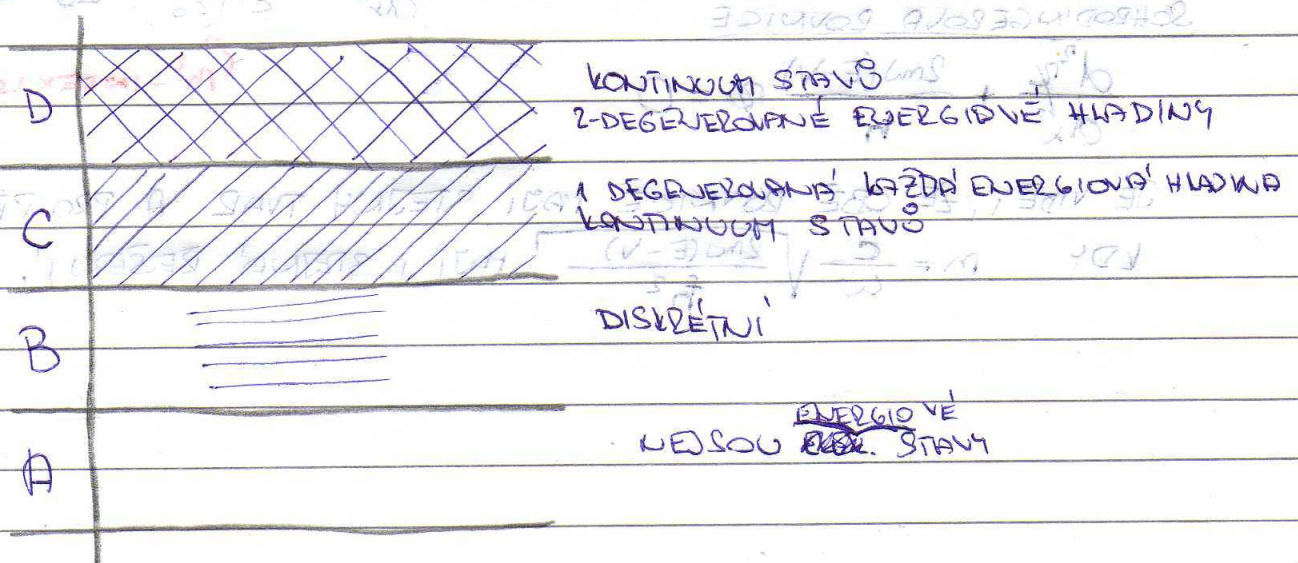 D
KONTINUUM STAVŮ
2-DEGENEROVANÉ ENERGIOVÉ HLADINY
C
1 DEGENEROVANÁ KAŽDÁ ENERGIOVÁ HLADINA
KONTINUUM STAVŮ
B
DISKRÉTNÍ
A
ENERGIOVÉ
NEJSOU STAVY